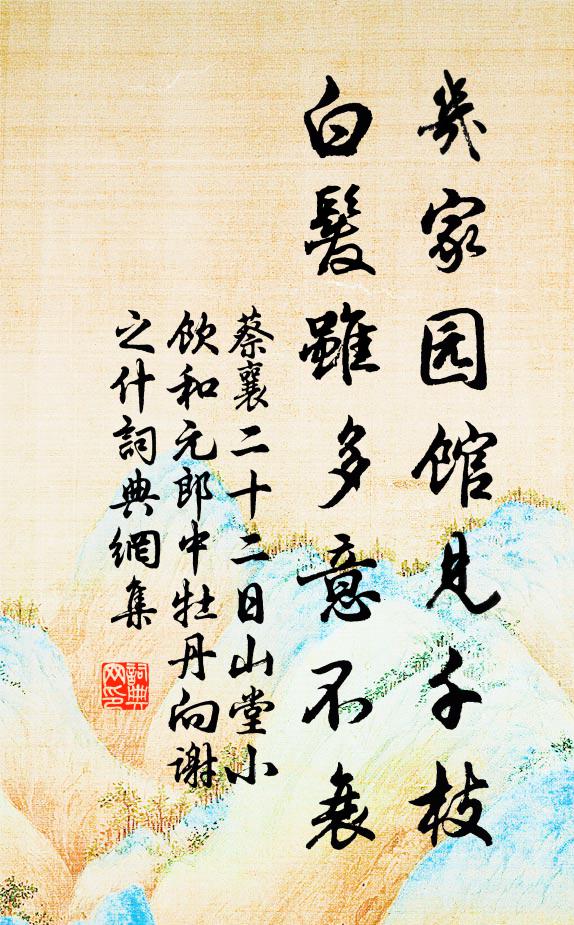 几家园馆见千枝
白髮雖多意不衰
蔡襄二十二日山堂小
飲和元郎中牡丹向謝
之什詞典網集
詞典
网印